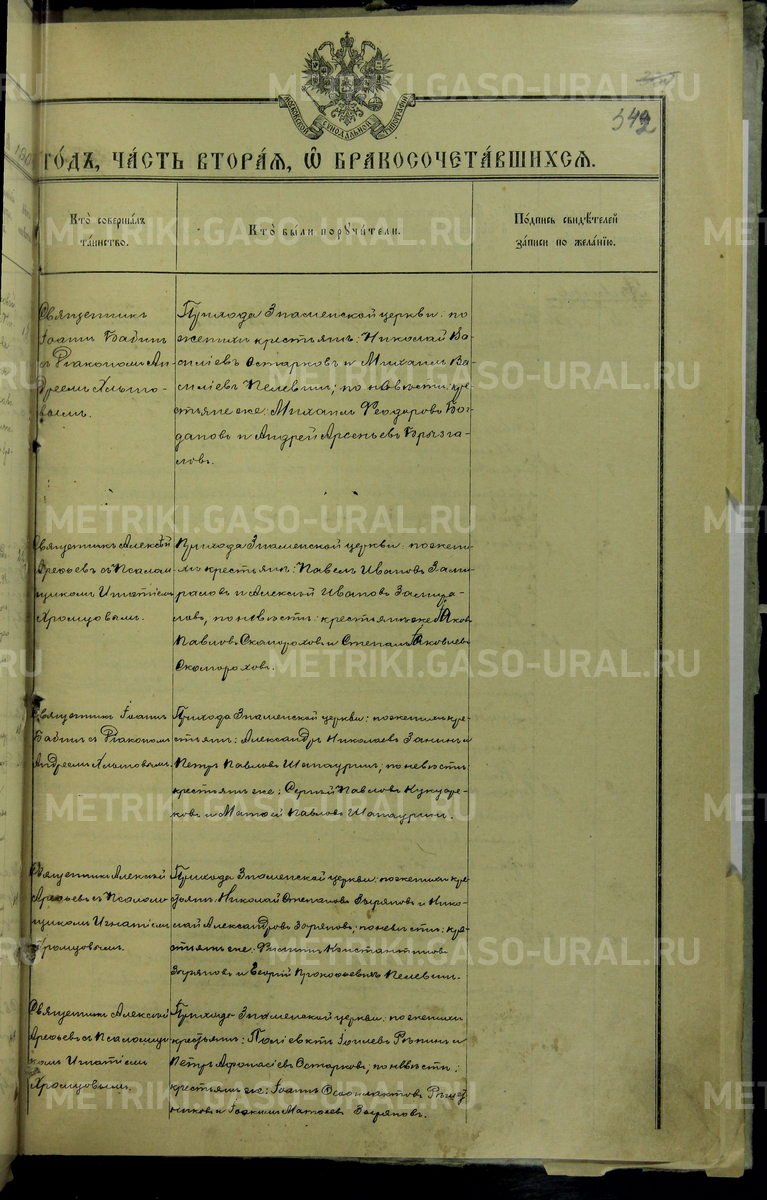 342
МОСКОВСКОЙ СѴНОДАЛЬНОЙ ТИПОГРАФІИ
ГОДЪ, ЧАСТЬ ВТОРАЯ, Ѿ БРАКОСОЧЕТАВШИХСЯ.
Кто совершалъ таинство.
Кто были поручители.
Подпись свидѣтелей записи по желанію.
Священникъ
Іоаннъ Бабинъ
съ Діакономъ Ан-
дреемъ Хлыно-
вымъ.
Прихода Знаменской церкви: по
женихѣ крестьяне: Николай Ва-
силіевъ Остарковъ и Михаилъ Ва-
силіевъ Пелевинъ; по невѣстѣ: кре-
стьяне же: Михаилъ Ѳеодоровъ Бог-
дановъ и Андрей Арсеньевъ Брызга-
ловъ.
Священникъ Алексѣй
Арефьевъ съ Псалом-
щикомъ Игнатіемъ
Хромцовымъ.
Прихода Знаменской церкви: по жени-
хѣ крестьяне: Павелъ Ивановъ
и Алексѣй Ивановъ
по невѣстѣ: крестьяне же Яковъ
Павловъ Скоморохов и Степанъ Яковлевъ
Скомороховъ.
Священникъ Іоаннъ
Бабинъ съ Діакономъ
Андреемъ Хлыновымъ.
Прихода Знаменской церкви: по женихѣ кре-
стьяне: Александръ Николаевъ Занинъ и
Петръ Павловъ Шапауринъ; по невѣстѣ:
крестьяне же: Сергѣй Павловъ
и Матѳей Павловъ Шапауринъ.
Священникъ Алексѣй
Арефьевъ съ Псаломо-
щикомъ Игнатіемъ
Хромцовымъ.
Прихода Знаменской церкви: по женихѣ кре-
стьяне: Николай Степановъ Зыряновъ и Нико-
лай Александровъ Зыряновъ; по невѣстѣ: кре-
стьяне же: Филиппъ Константиновъ
Зыряновъ и Георгій Прокопьевичъ Пелевинъ.
Священникъ Алексѣй
Арефьевъ съ Псаломщи-
комъ Игнатіемъ
Хромцовымъ.
Прихода Знаменской церкви: по женихѣ
крестьяне: Поліевктъ Рѣпинъ и
Петръ Аѳонасіевъ Остарковъ; по невѣстѣ:
крестьяне же: Іоаннъ Ѳеофилактовъ
и Іоакимъ Матѳеевъ Зыряновъ.
METRIKI.GASO-URAL.RU